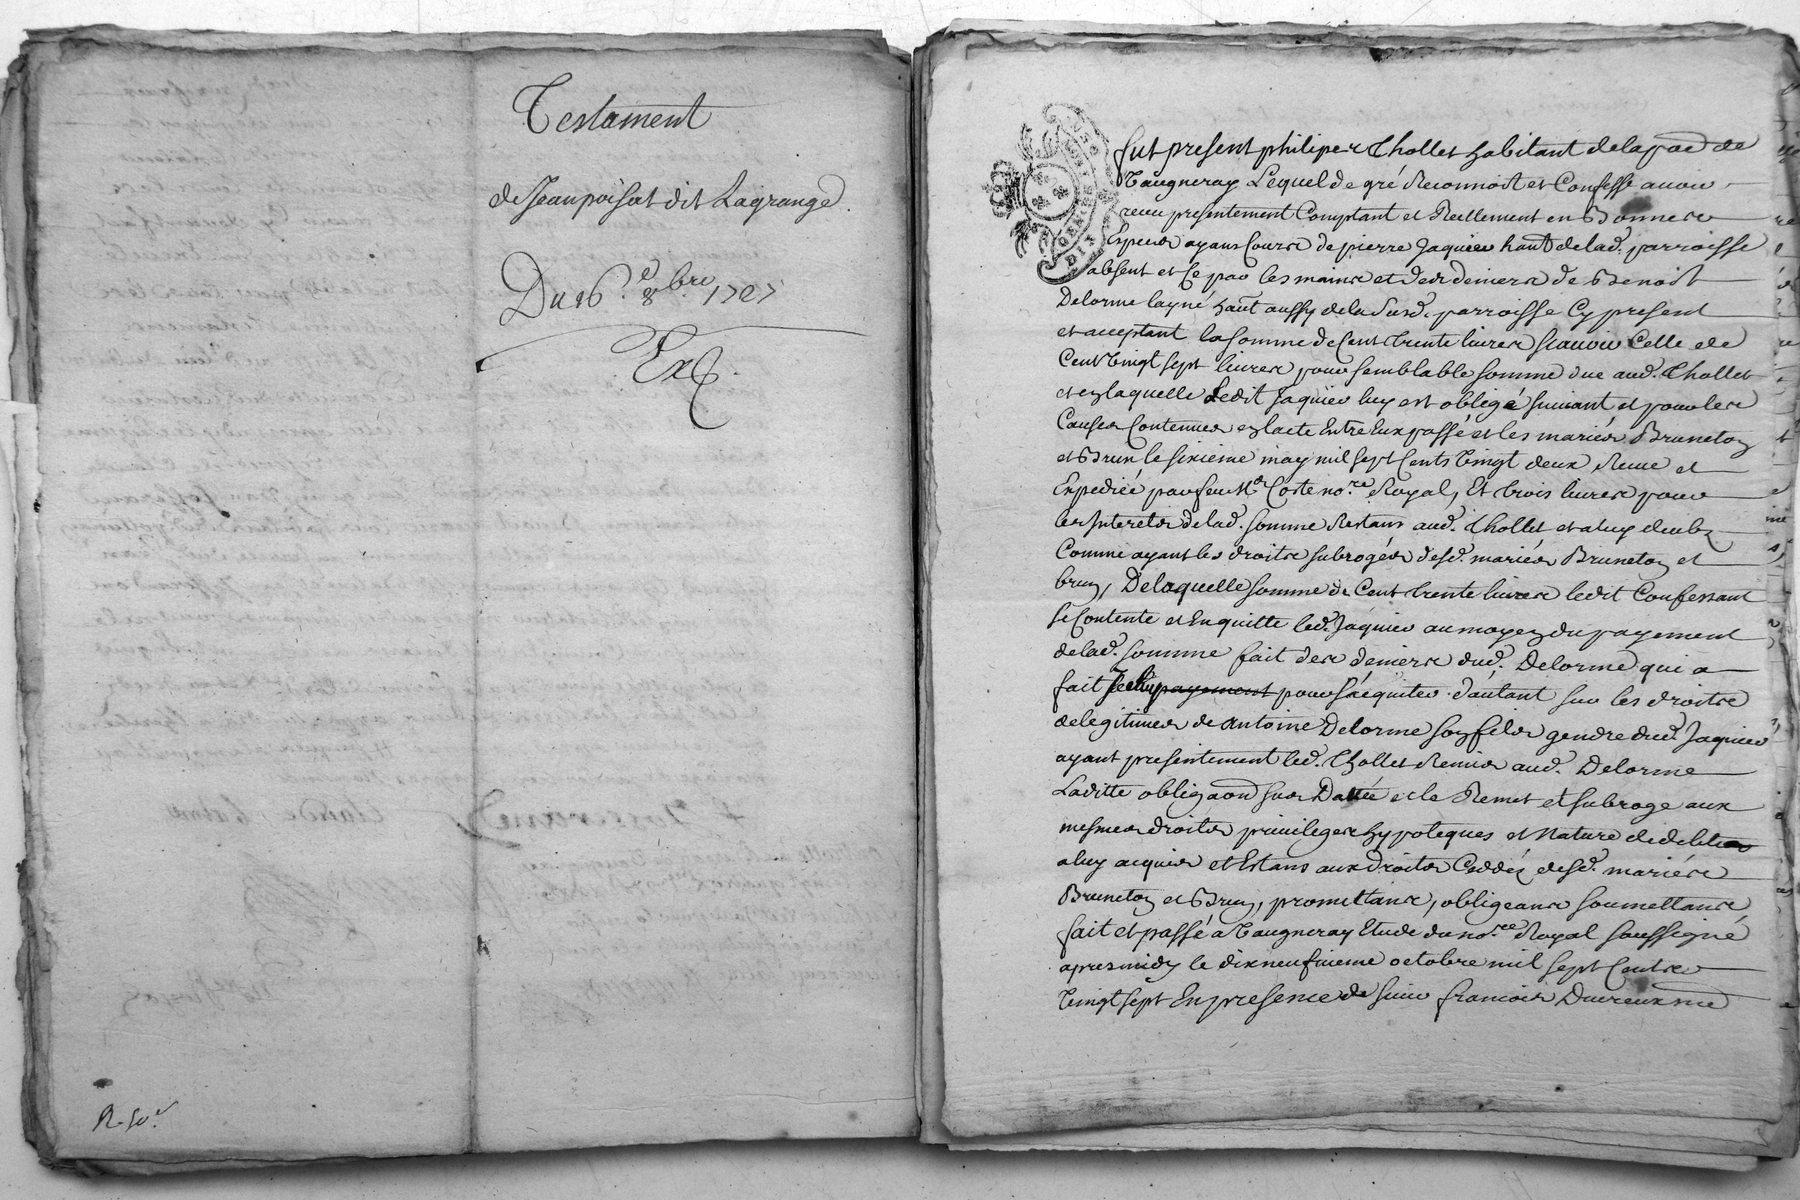 Testament
de Jean poisat dit Lagrange.
Du 16.e 8.bre 1727
Exp.
R. Sc.r
fut present philiper Chollet habitant de la parr de
Vaugneray Lequel de gré Reconnoist et Confesse avoir
receu presentement Comptant et Reellement en Bonneres
Especes ayans Cours de pierre Jaquier hant de lad. parroisse
absent et Ce par les mains et des deniers de Benoist
Delorme layné hant aussy de la Susd. parroisse Cy present
et acceptant la Somme de Cent trente livres Scauoir Celle de
Cent Vingt sept livres pour semblable somme due aud. Chollet
et en laquelle Ledit Jaquier luy est oblegé suivant et pour les
Causes Contenues en lacte Entre Eux passé et les mariés Bruneton
et Brun le sixieme may mil sept Cents Vingt deux Receu et
Expediée par feu M.e Coste no.re Royal, Et trois livres pour
les Interets de lad. somme Restans aud. Chollet et a luy deubz
Comme ayant les droits subrogés desd. mariés Bruneton et
brun, De laquelle somme de Cent trente livres ledit Confessant
se Contente et En quitte led. Jaquier au moyen du payement
de lad. somme fait des deniers dud. Delorme qui a
fait pour Sacquiter d'autant sur les droits
de legitimes de Antoine Delorme son fils gendre dud. Jaquier
ayant presentement led. Chollet Remis aud. Delorme
Laditte obligaon sus Dattée et le Remet et subroge aux
mesmes droits privileges hypoteques et Nature de debte
a luy acquis et Estans aux droits Ceddéz desd. mariés
Bruneton et Brun, promettans, obligeans soumettans
fait et passé a Vaugneray Etude du no.re Royal soussigné
apres midy le dixneufvieme octobre mil sept Cents
Vingt sept En presence de sieur francois Ducreux me